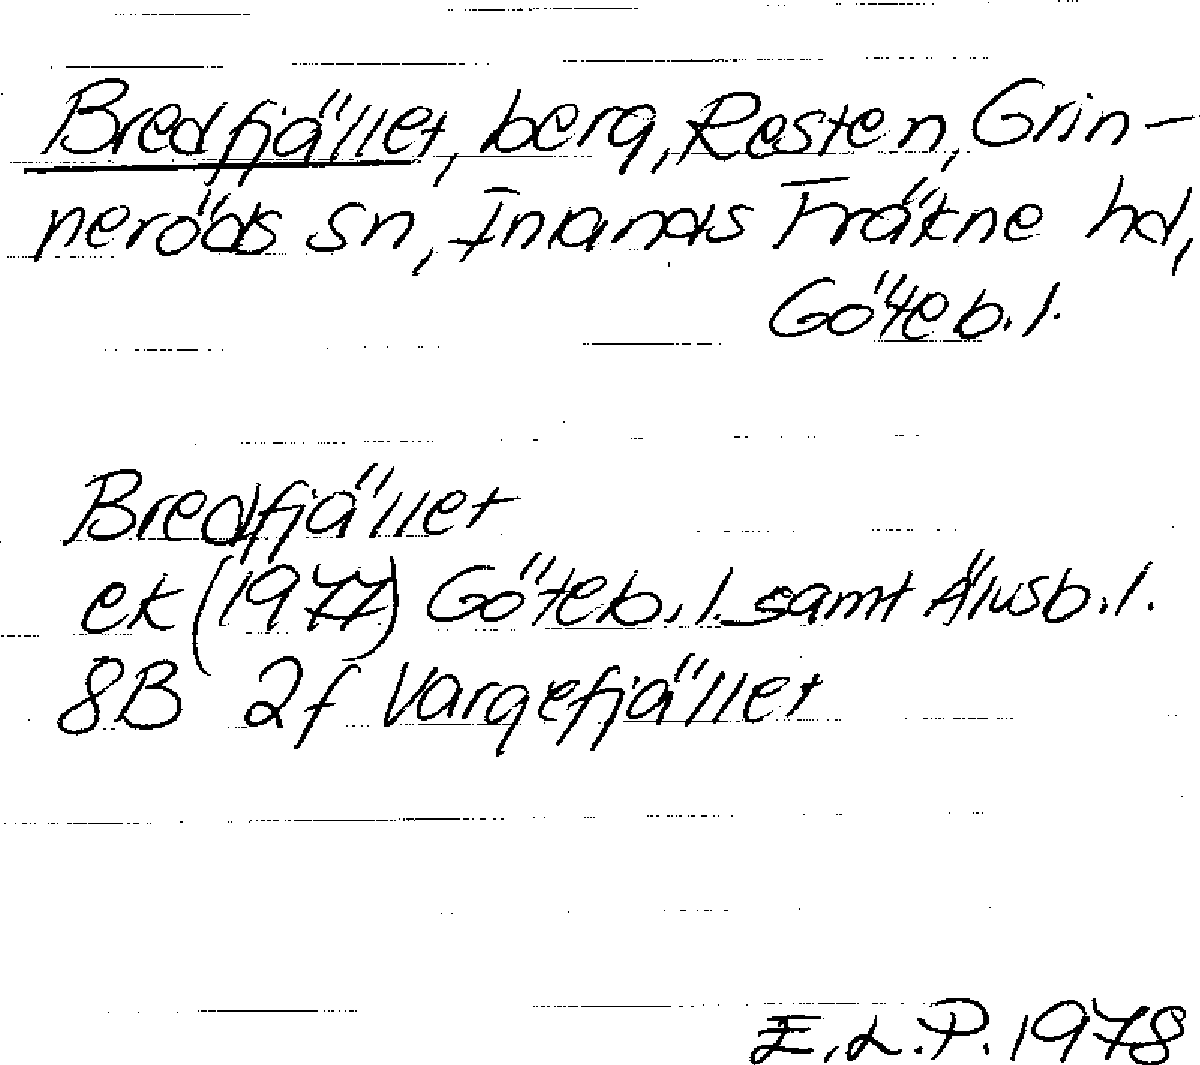 Bredfjället, berg, Resten, Grin-
neröds sn, Inlands Fräkne hd,
Göteb. l.
Bredfjället
ek (1977) Göteb. l. samt Älvsb. l.
8B 2f Vargefjället
E.L.P. 1978